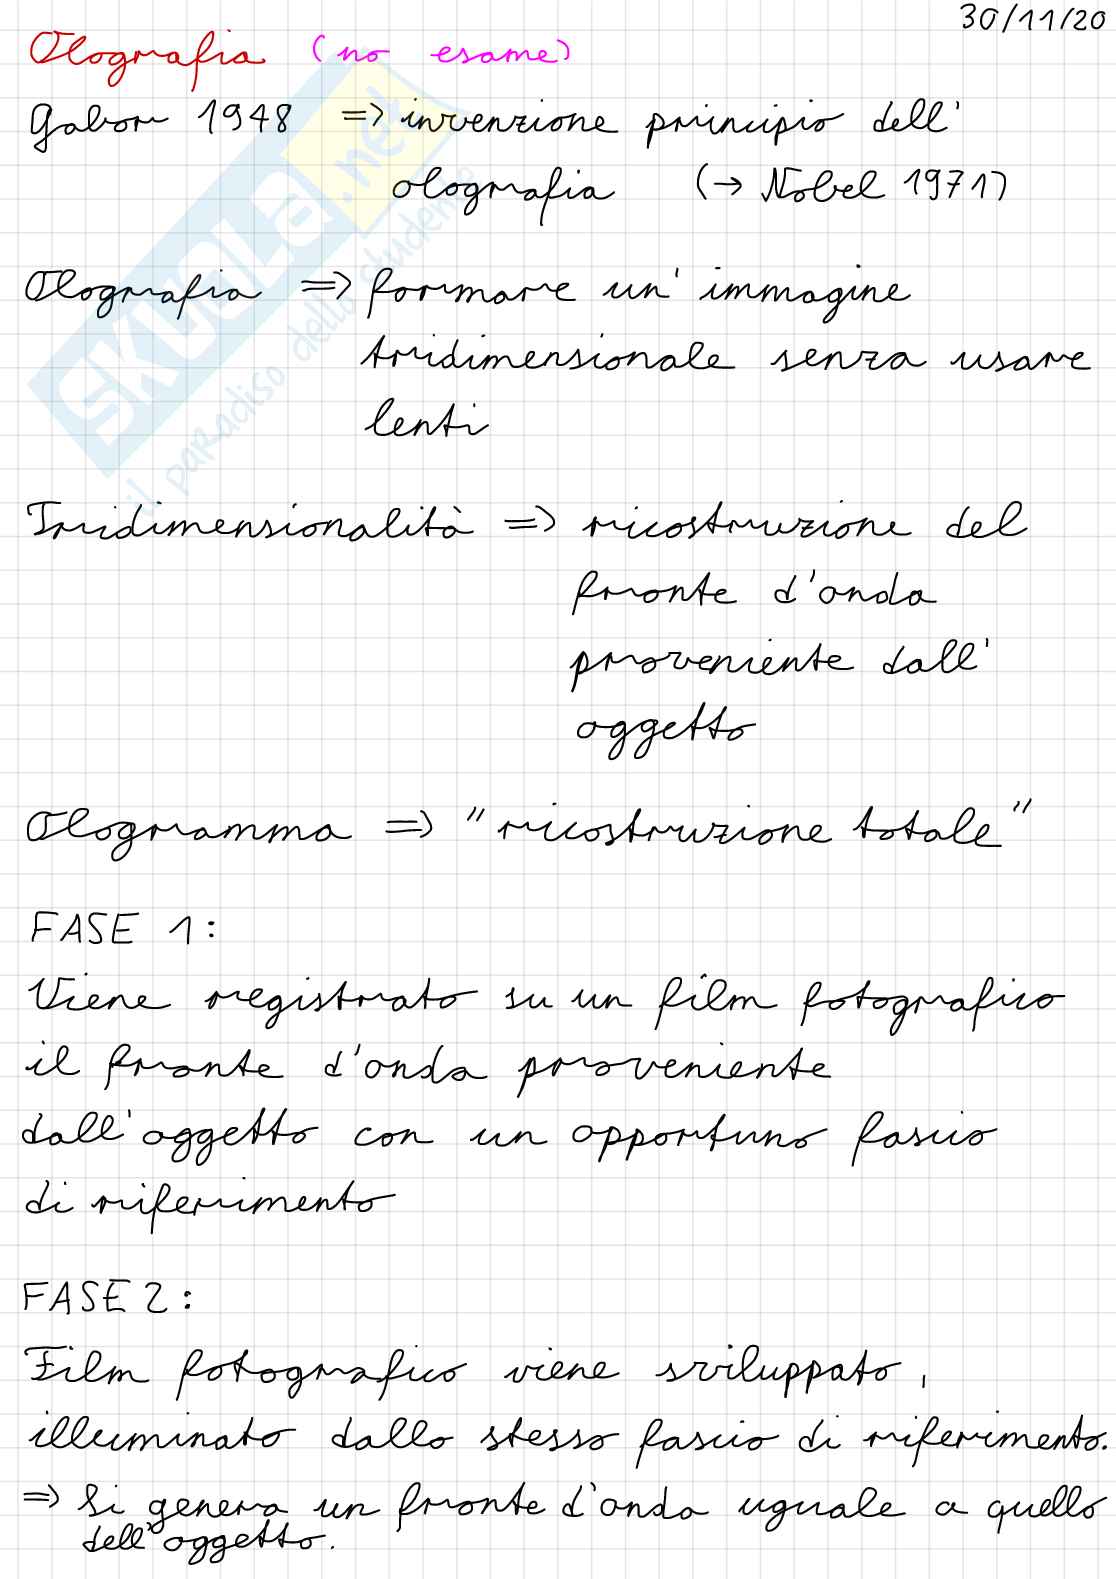 30/11/20
Olografia (no esame)
Gabor 1948 => invenzione principio dell'
olografia (→ Nobel 1971)
Olografia => formare un' immagine
tridimensionale senza usare
lenti
Tridimensionalità => ricostruzione del
fronte d'onda
proveniente dall'
oggetto
Ologramma => "ricostruzione totale"
FASE 1:
Viene registrato su un film fotografico
il fronte d'onda proveniente
dall'oggetto con un opportuno fascio
di riferimento
FASE 2:
Film fotografico viene sviluppato,
illuminato dallo stesso fascio di riferimento.
=> Si genera un fronte d'onda uguale a quello
dell'oggetto.
SKUOLA.net
il paradiso dello studente